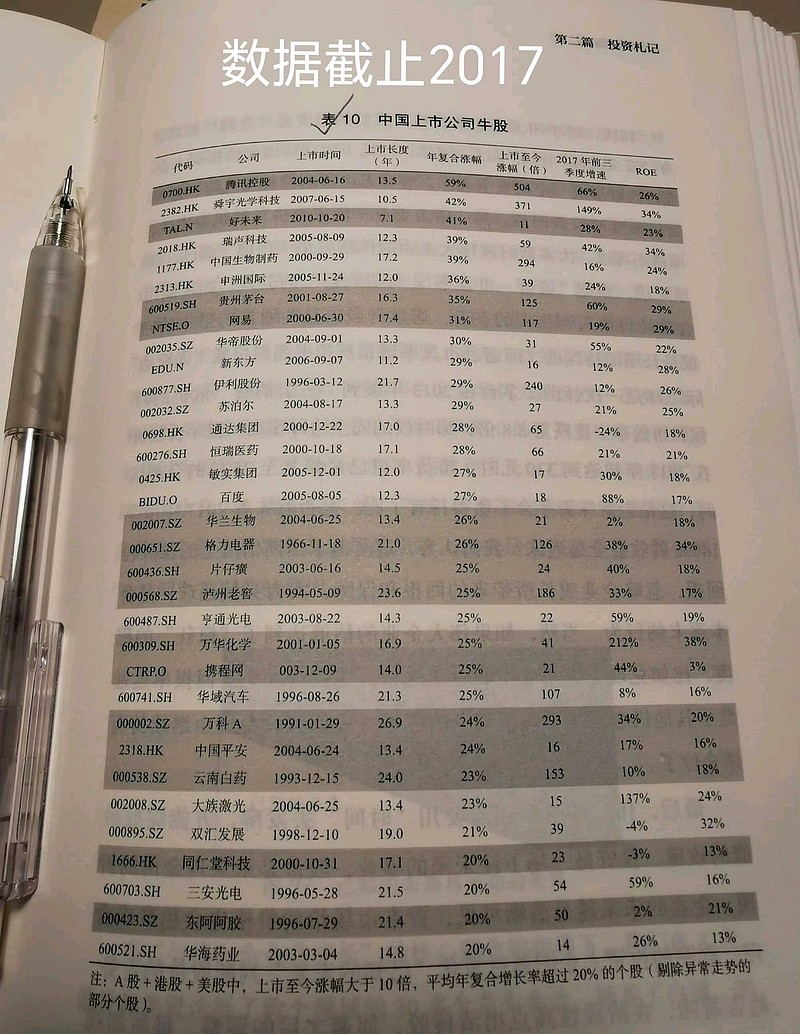 第二篇 投资札记
数据截止2017
表 10 中国上市公司牛股
代码 公司 上市时间 上市长度（年） 年复合涨幅 上市至今涨幅（倍） 2017 年前三季度增速 ROE
0700.HK 腾讯控股 2004-06-16 13.5 59% 504 66% 26%
2382.HK 舜宇光学科技 2007-06-15 10.5 42% 371 149% 34%
TAL.N 好未来 2010-10-20 7.1 41% 11 28% 23%
2018.HK 瑞声科技 2005-08-09 12.3 39% 59 42% 34%
1177.HK 中国生物制药 2000-09-29 17.2 39% 294 16% 24%
2313.HK 申洲国际 2005-11-24 12.0 36% 39 24% 18%
600519.SH 贵州茅台 2001-08-27 16.3 35% 125 60% 29%
NTSE.O 网易 2000-06-30 17.4 31% 117 19% 29%
002035.SZ 华帝股份 2004-09-01 13.3 30% 31 55% 22%
EDU.N 新东方 2006-09-07 11.2 29% 16 12% 28%
600877.SH 伊利股份 1996-03-12 21.7 29% 240 12% 26%
002032.SZ 苏泊尔 2004-08-17 13.3 29% 27 21% 25%
0698.HK 通达集团 2000-12-22 17.0 28% 65 -24% 18%
600276.SH 恒瑞医药 2000-10-18 17.1 28% 66 21% 21%
0425.HK 敏实集团 2005-12-01 12.0 27% 17 30% 18%
BIDU.O 百度 2005-08-05 12.3 27% 18 88% 17%
002007.SZ 华兰生物 2004-06-25 13.4 26% 21 2% 18%
000651.SZ 格力电器 1966-11-18 21.0 26% 126 38% 34%
600436.SH 片仔癀 2003-06-16 14.5 25% 24 40% 18%
000568.SZ 泸州老窖 1994-05-09 23.6 25% 186 33% 17%
600487.SH 亨通光电 2003-08-22 14.3 25% 22 59% 19%
600309.SH 万华化学 2001-01-05 16.9 25% 41 212% 38%
CTRP.O 携程网 003-12-09 14.0 25% 21 44% 3%
600741.SH 华域汽车 1996-08-26 21.3 25% 107 8% 16%
000002.SZ 万科 A 1991-01-29 26.9 24% 293 34% 20%
2318.HK 中国平安 2004-06-24 13.4 24% 16 17% 16%
000538.SZ 云南白药 1993-12-15 24.0 23% 153 10% 18%
002008.SZ 大族激光 2004-06-25 13.4 23% 15 137% 24%
000895.SZ 双汇发展 1998-12-10 19.0 21% 39 -4% 32%
1666.HK 同仁堂科技 2000-10-31 17.1 20% 23 -3% 13%
600703.SH 三安光电 1996-05-28 21.5 20% 54 59% 16%
000423.SZ 东阿阿胶 1996-07-29 21.4 20% 50 2% 21%
600521.SH 华海药业 2003-03-04 14.8 20% 14 26% 13%
注：A 股＋港股＋美股中，上市至今涨幅大于 10 倍，平均年复合增长率超过 20% 的个股（剔除异常走势的
部分个股）。